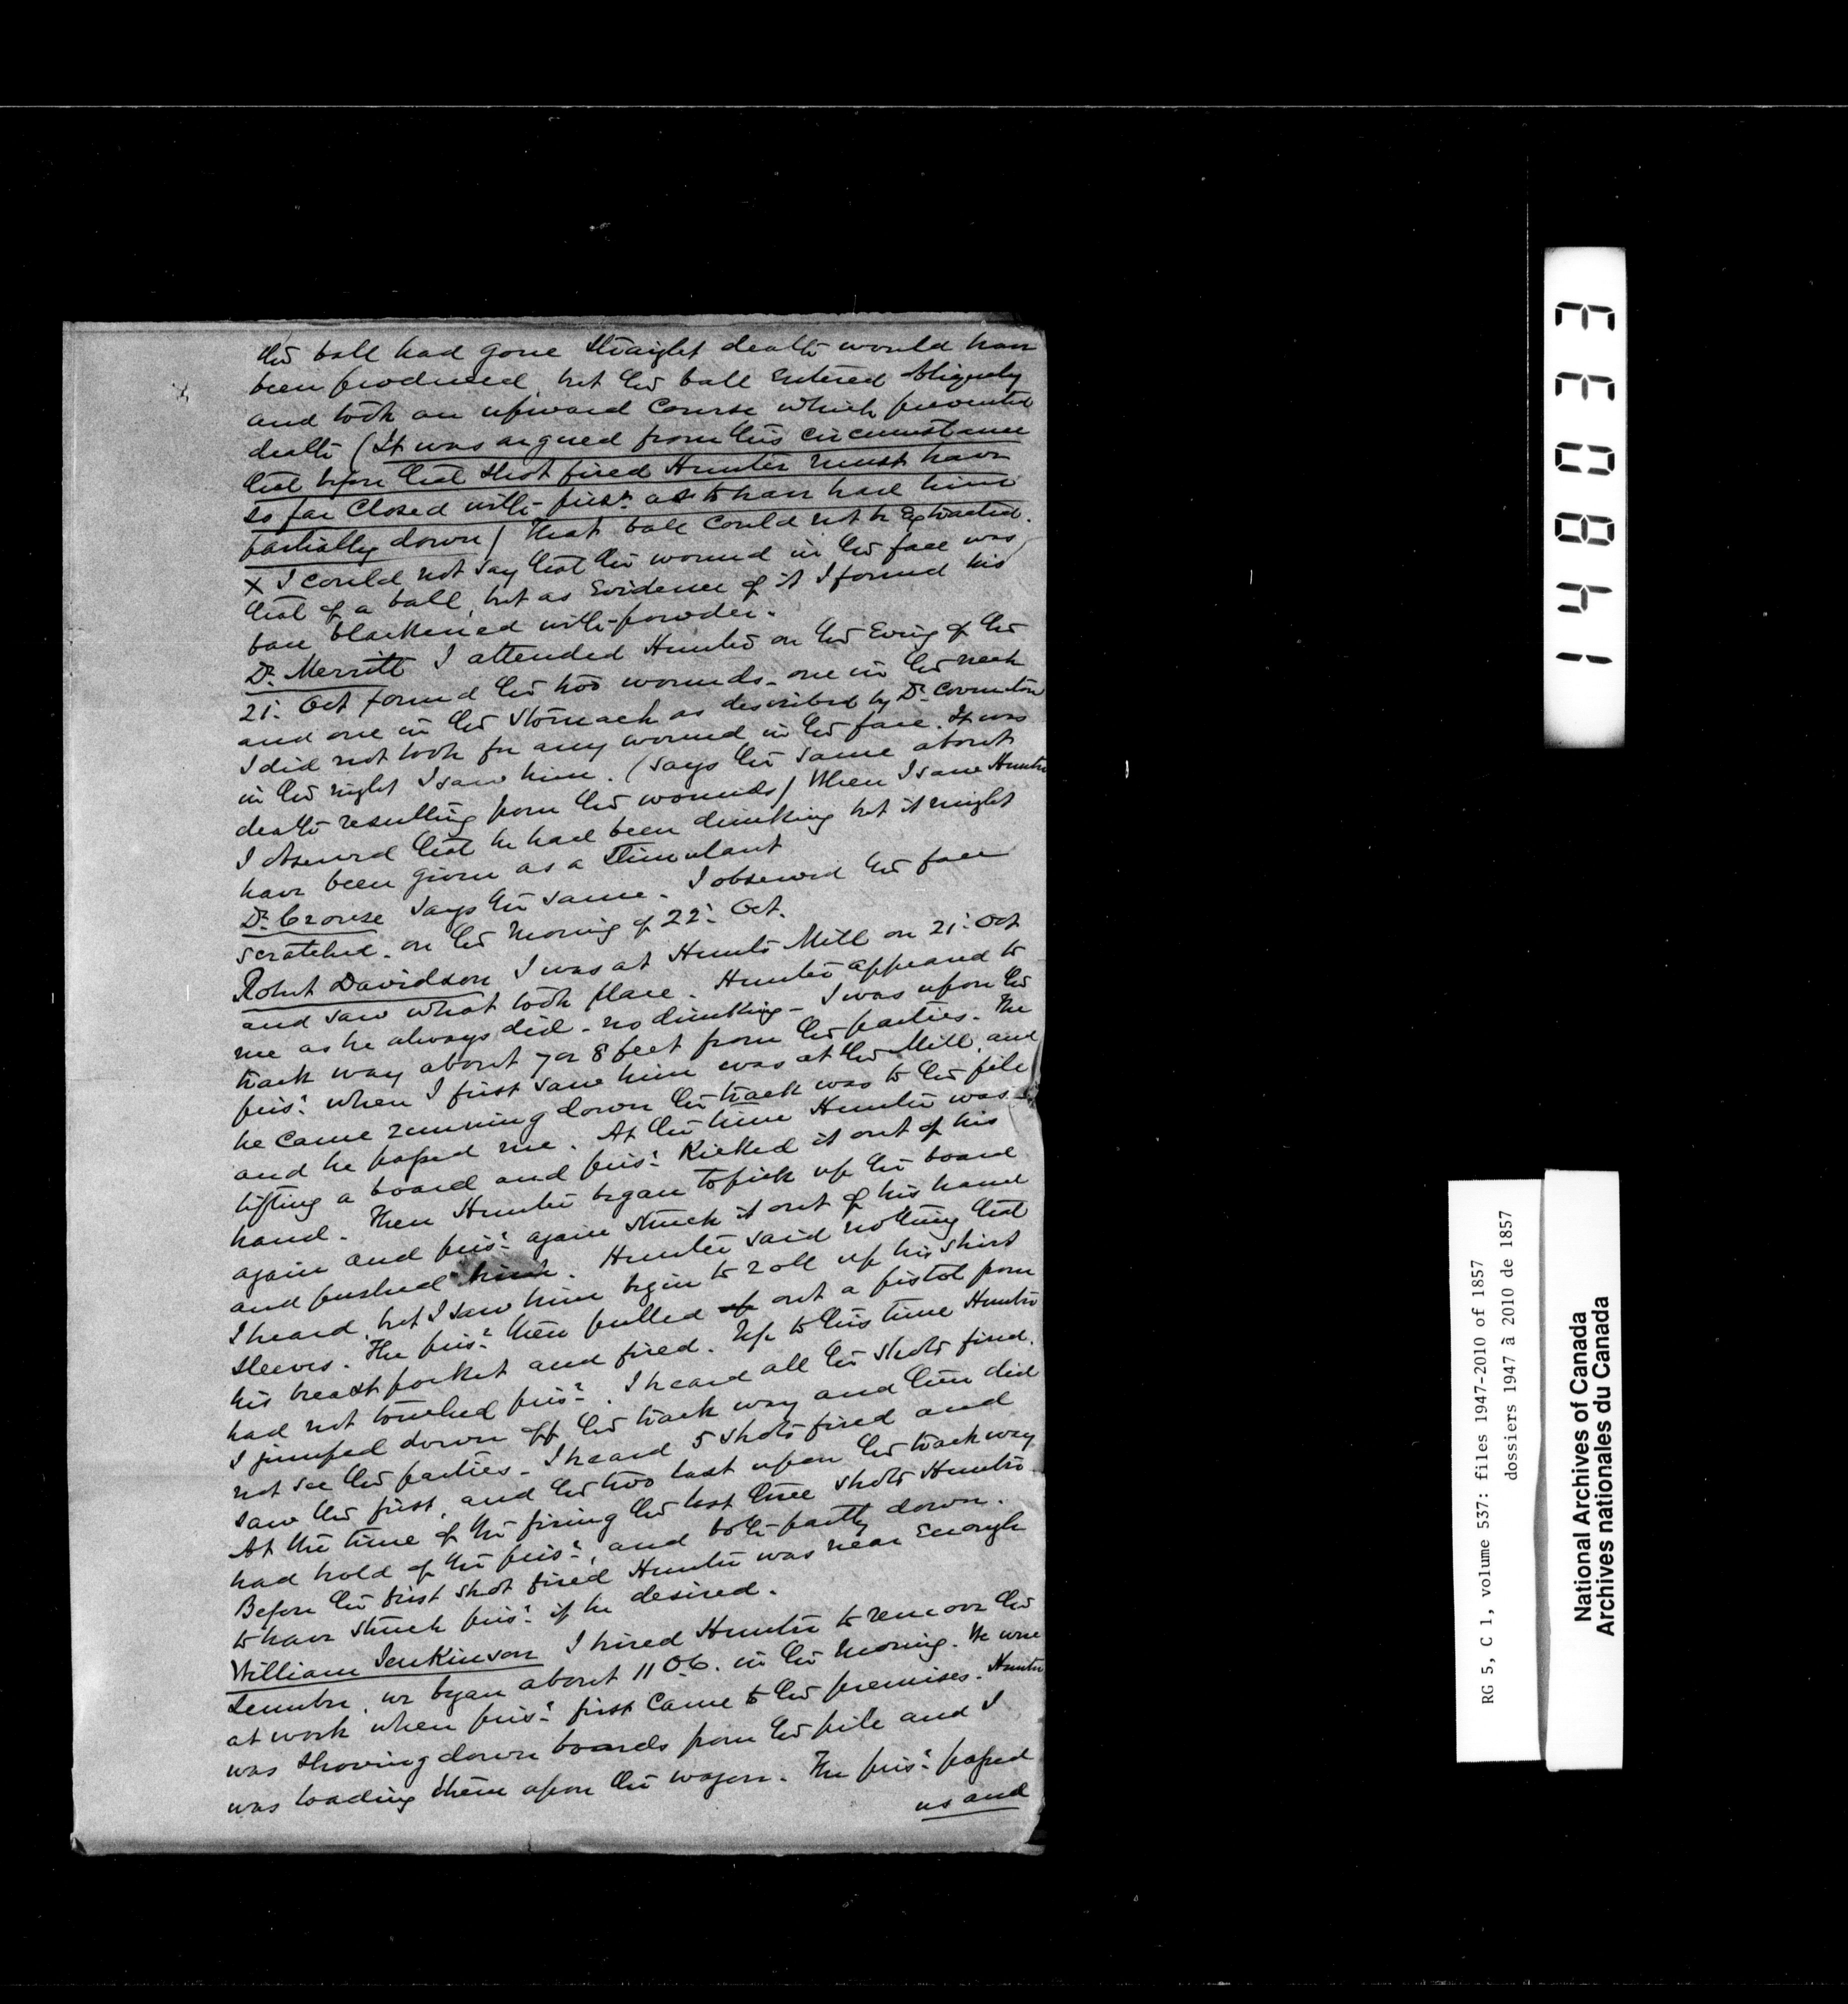 the ball had gone straight death would have
been produced, but the ball entered obliquely
and took an upward course which prevented
death (It was argued from this circumstance
that before that shot fired Hunter must have
so far closed with prisr. as to have had him
partially down) That ball could not be extracted.
X I could not say that the wound in the face was
that of a ball, but as evidence of it I found his
face blackened with powder.
Dr. Merritt I attended Hunter on the Eving of the
21: Oct found the two wounds - one in the neck
and one in the stomach as described by Dr
I did not look for any wound in the face. It was
in the night I saw him. (says the same about
death resulting from the wounds) When I saw Hunter
I observed that he had been drinking but it might
have been given as a stimulant
Dr. Crouse says the same - I observed the face
scratched - on the morning of 22: Oct.
Robert Davidson I was at Hunts Mill on 21: Oct
and saw what took place - Hunter appeared to
me as he always did - no drinking - I was upon the
track way about 7 or 8 feet from the parties. The
prisr. when I first saw him was at the Mill, and
he came running down the track was to the pile
and he passed me. At the time Hunter was
lifting a board and prisr. Kicked it out of his
hand. Then Hunter began to pick up the board
again and prisr. again struck it out of his hand
and pushed him. Hunter said nothing that
I heard, but I saw him begin to roll up his shirt
sleeves. The prisr. then pulled up out a pistol from
his breast pocket and fired. Up to this time Hunter
had not touched prisr. I heard all the shots fired.
I jumped down off the track way and then did
not see the parties - I heard 5 shots fired and
saw the first, and the two last upon the track way
At the time of the firing the last three shots Hunter
had hold of the prisr., and both partly down.
Before the first shot fired Hunter was near enough
to have struck prisr. if he desired.
William Jenkinson I hired Hunter to remove the
lumber, we began about 11 O.C. in the morning. We were
at work when prisr. first came to the premises. Hunter
was shoving down boards from the pile and I
was loading them upon the wagon. The prisr. passed
us and
148033
RG 5, C 1, volume 537: files 1947-2010 of 1857
dossiers 1947 à 2010 de 1857
National Archives of Canada
Archives nationales du Canada